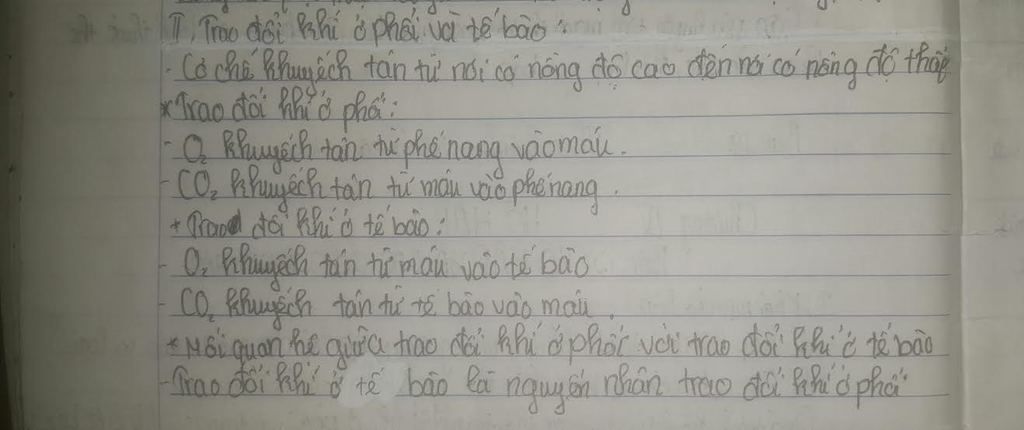 II, Trao đổi khí ở phổi và tế bào :
- Cơ chế khuyếch tán từ nơi có nồng độ cao đến nơi có nồng độ thấp
* Trao đổi khí ở phổi :
- O₂ khuyếch tán từ phế nang vào máu.
- CO₂ khuyếch tán từ máu vào phế nang.
* Trao đổi khí ở tế bào :
- O₂ khuyếch tán từ máu vào tế bào
- CO₂ khuyếch tán từ tế bào vào máu.
* Mối quan hệ giữa trao đổi khí ở phổi với trao đổi khí ở tế bào
- Trao đổi khí ở tế bào là nguyên nhân trao đổi khí ở phổi